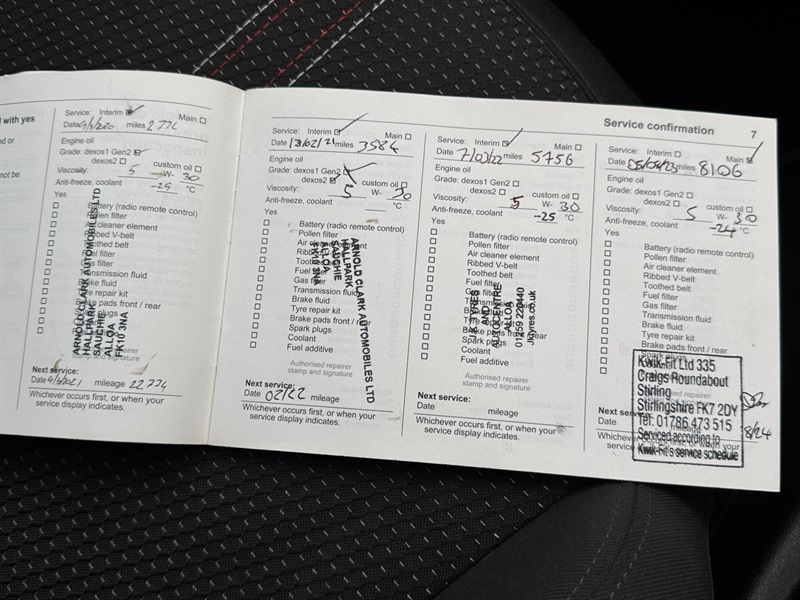 Service confirmation 7
d with yes
ed or
not be
Service: Interim Main
Date 9/3/2020 miles 2772
Engine oil
Grade: dexos1 Gen2
dexos2 custom oil
Viscosity: 5 W- 30
Anti-freeze, coolant -25 °C
Yes
Battery (radio remote control)
Pollen filter
Air cleaner element
Ribbed V-belt
Toothed belt
Fuel filter
Gas filter
Transmission fluid
Brake fluid
Tyre repair kit
Brake pads front / rear
Spark plugs
ARNOLD CLARK AUTOMOBILES LTD
HALLPARK
SAUCHIE
ALLOA
FK10 3NA
Authorised repairer
stamp and signature
Next service:
Date 9/3/2021 mileage 22,774
Whichever occurs first, or when your
service display indicates.
Service: Interim Main
Date 13/02/21 miles 3584
Engine oil
Grade: dexos1 Gen2
dexos2 custom oil
Viscosity: 5 W- 30
Anti-freeze, coolant °C
Yes
Battery (radio remote control)
Pollen filter
Air cleaner element
Ribbed V-belt
Toothed belt
Fuel filter
Gas filter
Transmission fluid
Brake fluid
Tyre repair kit
Brake pads front / rear
Spark plugs
Coolant
Fuel additive
ARNOLD CLARK AUTOMOBILES LTD
HALLPARK
SAUCHIE
ALLOA
FK10 3NA
Authorised repairer
stamp and signature
Next service:
Date 02/22 mileage
Whichever occurs first, or when your
service display indicates.
Service: Interim Main
Date 7/03/22 miles 5456
Engine oil
Grade: dexos1 Gen2
dexos2 custom oil
Viscosity: 5 W- 30
Anti-freeze, coolant -25 °C
Yes
Battery (radio remote control)
Pollen filter
Air cleaner element
Ribbed V-belt
Toothed belt
Fuel filter
Gas filter
Transmission fluid
Brake fluid
Tyre repair kit
Brake pads front / rear
Spark plugs
Coolant
Fuel additive
TYRES
AND
AUTOCENTRE
ALLOA
01259 220440
Authorised repairer
stamp and signature
Next service:
Date mileage
Whichever occurs first, or when your
service display indicates.
Service: Interim Main
Date 05/04/23 miles 8106
Engine oil
Grade: dexos1 Gen2
dexos2 custom oil
Viscosity: 5 W- 30
Anti-freeze, coolant -24 °C
Yes
Battery (radio remote control)
Pollen filter
Air cleaner element
Ribbed V-belt
Toothed belt
Fuel filter
Gas filter
Transmission fluid
Brake fluid
Tyre repair kit
Brake pads front / rear
Spark plugs
Kwik-Fit Ltd 335
Craigs Roundabout
Stirling
Stirlingshire FK7 2DY
Tel: 01786 473 515
Serviced according to
Kwik-Fit's service schedule
repairer
Next service:
Date mileage
Whichever when your